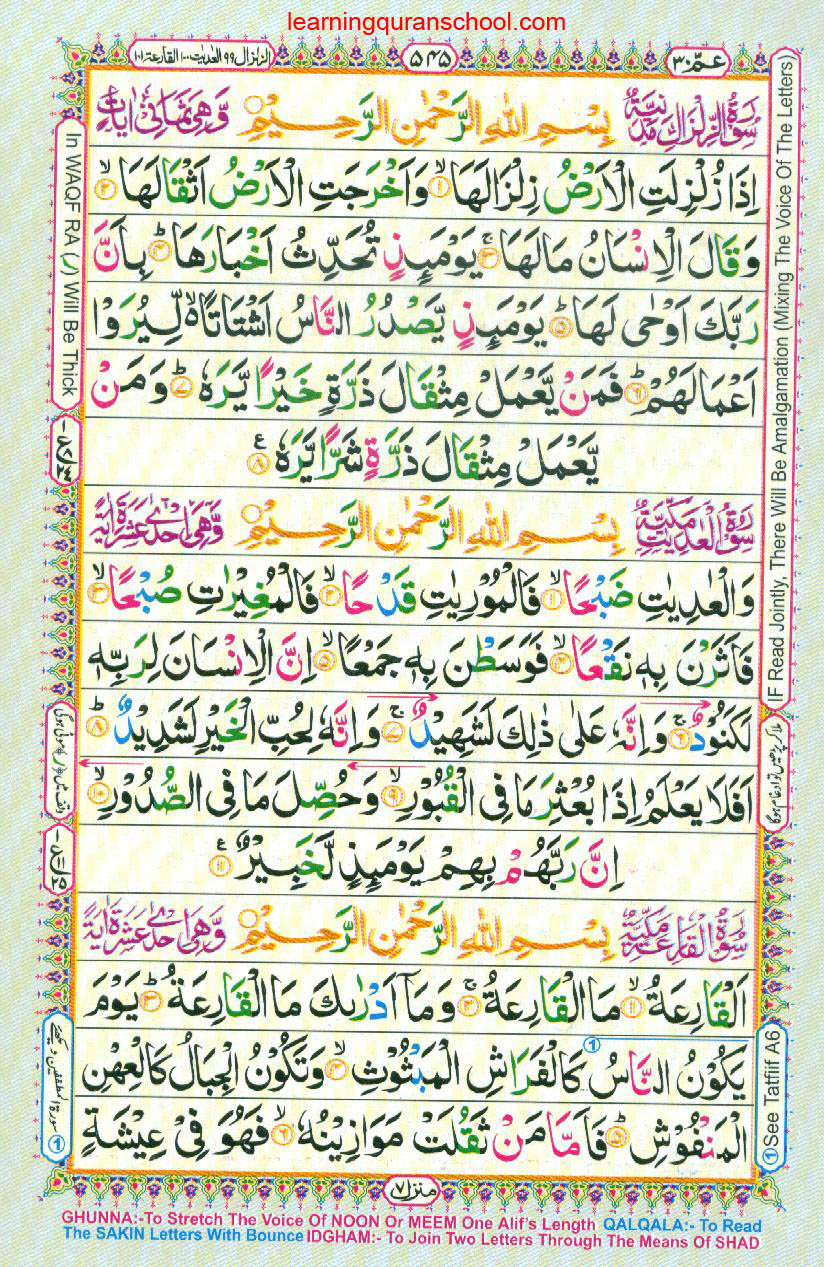 learningquranschool.com
عم٣٠ ٥٤٥ الزلزال ٩٩ العدیت ١٠٠ القارعة ١٠١
سُوْرَةُ الزِّلْزَالِ مَدَنِيَّةٌ بِسْمِ اللهِ الرَّحْمٰنِ الرَّحِيْمِ وَّهِيَ ثَمَانِيْ اٰيَاتٍ
اِذَا زُلْزِلَتِ الْاَرْضُ زِلْزَالَهَا ۙ﴿۱﴾ وَاَخْرَجَتِ الْاَرْضُ اَثْقَالَهَا ۙ﴿۲﴾
وَقَالَ الْاِنْسَانُ مَا لَهَا ۚ﴿۳﴾ يَوْمَىِٕذٍ تُحَدِّثُ اَخْبَارَهَا ؕ﴿۴﴾ بِاَنَّ
رَبَّكَ اَوْحٰى لَهَا ؕ﴿۵﴾ يَوْمَىِٕذٍ يَّصْدُرُ النَّاسُ اَشْتَاتًا ۙ۬ لِّيُرَوْا
اَعْمَالَهُمْ ؕ﴿۶﴾ فَمَنْ يَّعْمَلْ مِثْقَالَ ذَرَّةٍ خَيْرًا يَّرَهٗ ؕ﴿۷﴾ وَمَنْ
يَّعْمَلْ مِثْقَالَ ذَرَّةٍ شَرًّا يَّرَهٗ ﴿۸﴾ ع
سُوْرَةُ الْعٰدِيٰتِ مَكِّيَّةٌ بِسْمِ اللهِ الرَّحْمٰنِ الرَّحِيْمِ وَّهِيَ اِحْدٰى عَشْرَةَ اٰيَةً
وَالْعٰدِيٰتِ ضَبْحًا ۙ﴿۱﴾ فَالْمُوْرِيٰتِ قَدْحًا ۙ﴿۲﴾ فَالْمُغِيْرٰتِ صُبْحًا ۙ﴿۳﴾
فَاَثَرْنَ بِهٖ نَقْعًا ۙ﴿۴﴾ فَوَسَطْنَ بِهٖ جَمْعًا ۙ﴿۵﴾ اِنَّ الْاِنْسَانَ لِرَبِّهٖ
لَكَنُوْدٌ ۚ﴿۶﴾ وَاِنَّهٗ عَلٰى ذٰلِكَ لَشَهِيْدٌ ۚ﴿۷﴾ وَاِنَّهٗ لِحُبِّ الْخَيْرِ لَشَدِيْدٌ ؕ﴿۸﴾
اَفَلَا يَعْلَمُ اِذَا بُعْثِرَ مَا فِى الْقُبُوْرِ ۙ﴿۹﴾ وَحُصِّلَ مَا فِى الصُّدُوْرِ ۙ﴿۱۰﴾
اِنَّ رَبَّهُمْ بِهِمْ يَوْمَىِٕذٍ لَّخَبِيْرٌ ﴿۱۱﴾ ع
سُوْرَةُ الْقَارِعَةِ مَكِّيَّةٌ بِسْمِ اللهِ الرَّحْمٰنِ الرَّحِيْمِ وَّهِيَ اِحْدٰى عَشْرَةَ اٰيَةً
اَلْقَارِعَةُ ۙ﴿۱﴾ مَا الْقَارِعَةُ ۚ﴿۲﴾ وَمَاۤ اَدْرٰىكَ مَا الْقَارِعَةُ ؕ﴿۳﴾ يَوْمَ
يَكُوْنُ النَّاسُ كَالْفَرَاشِ الْمَبْثُوْثِ ۙ﴿۴﴾ وَتَكُوْنُ الْجِبَالُ كَالْعِهْنِ
الْمَنْفُوْشِ ؕ﴿۵﴾ فَاَمَّا مَنْ ثَقُلَتْ مَوَازِيْنُهٗ ۙ﴿۶﴾ فَهُوَ فِيْ عِيْشَةٍ
منزل ٧
In WAQF RA (ر) Will Be Thick
وقف میں (ر) موٹی ہوگی
① سورة المطففین دیکھئے
IF Read Jointly, There Will Be Amalgamation (Mixing The Voice Of The Letters)
ملا کر پڑھیں تو ادغام ہوگا
① See Tatfiif A6
GHUNNA:-To Stretch The Voice Of NOON Or MEEM One Alif's Length QALQALA:- To Read
The SAKIN Letters With Bounce IDGHAM:- To Join Two Letters Through The Means Of SHAD